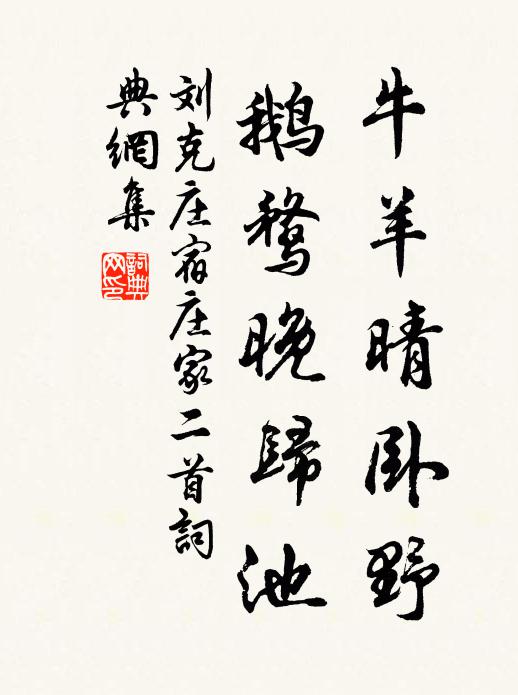 牛羊晴卧野
鹅鶩晚歸池
刘克庄宿庄家二首詞
典網集
詞典
网印